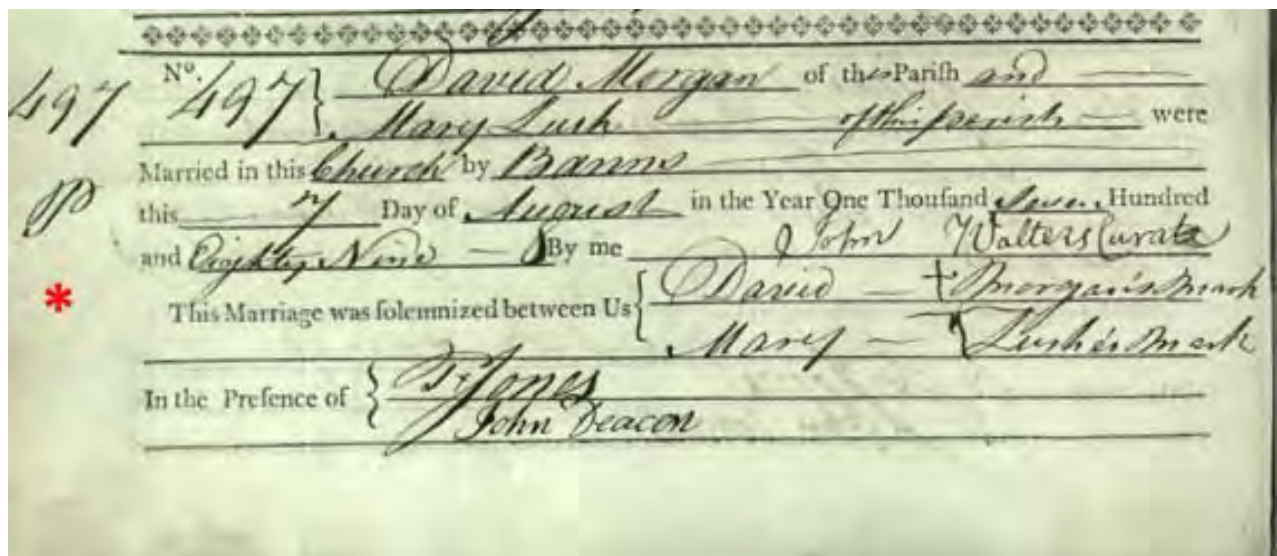 497 No. 497 David Morgan of this Parish and
Mary Lush of this parish were
Married in this Church by Banns
P this 7 Day of August in the Year One Thousand Seven Hundred
and Eighty Nine By me John Walters Curate
* This Marriage was solemnized between Us David + Morgan's Mark
Mary Lush's Mark
In the Presence of Jones
John Deacon